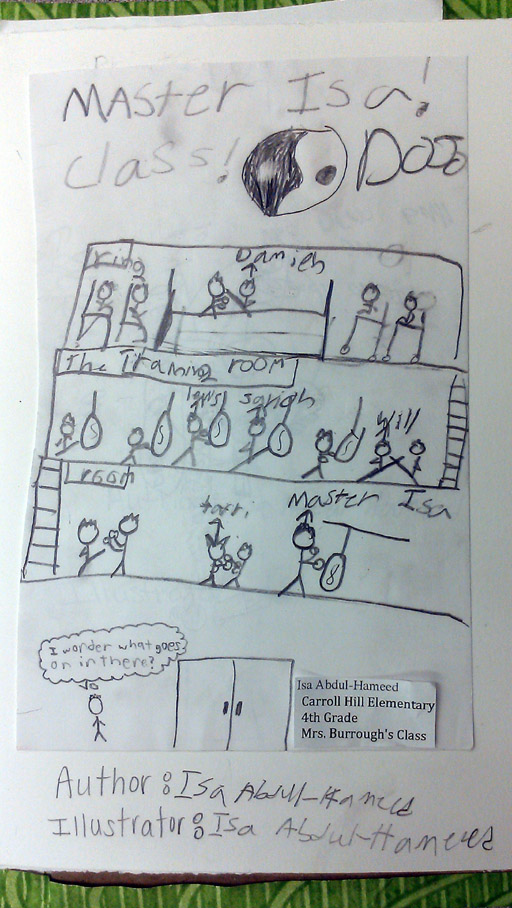 MASter Isa!
class! DOJO
ring
Damieh
The Training room
Will
room
Master Isa
I wonder what goes
on in there?
Isa Abdul-Hameed
Carroll Hill Elementary
4th Grade
Mrs. Burrough's Class
Author: Isa Abdul-Hameed
Illustrator: Isa Abdul-Hameed